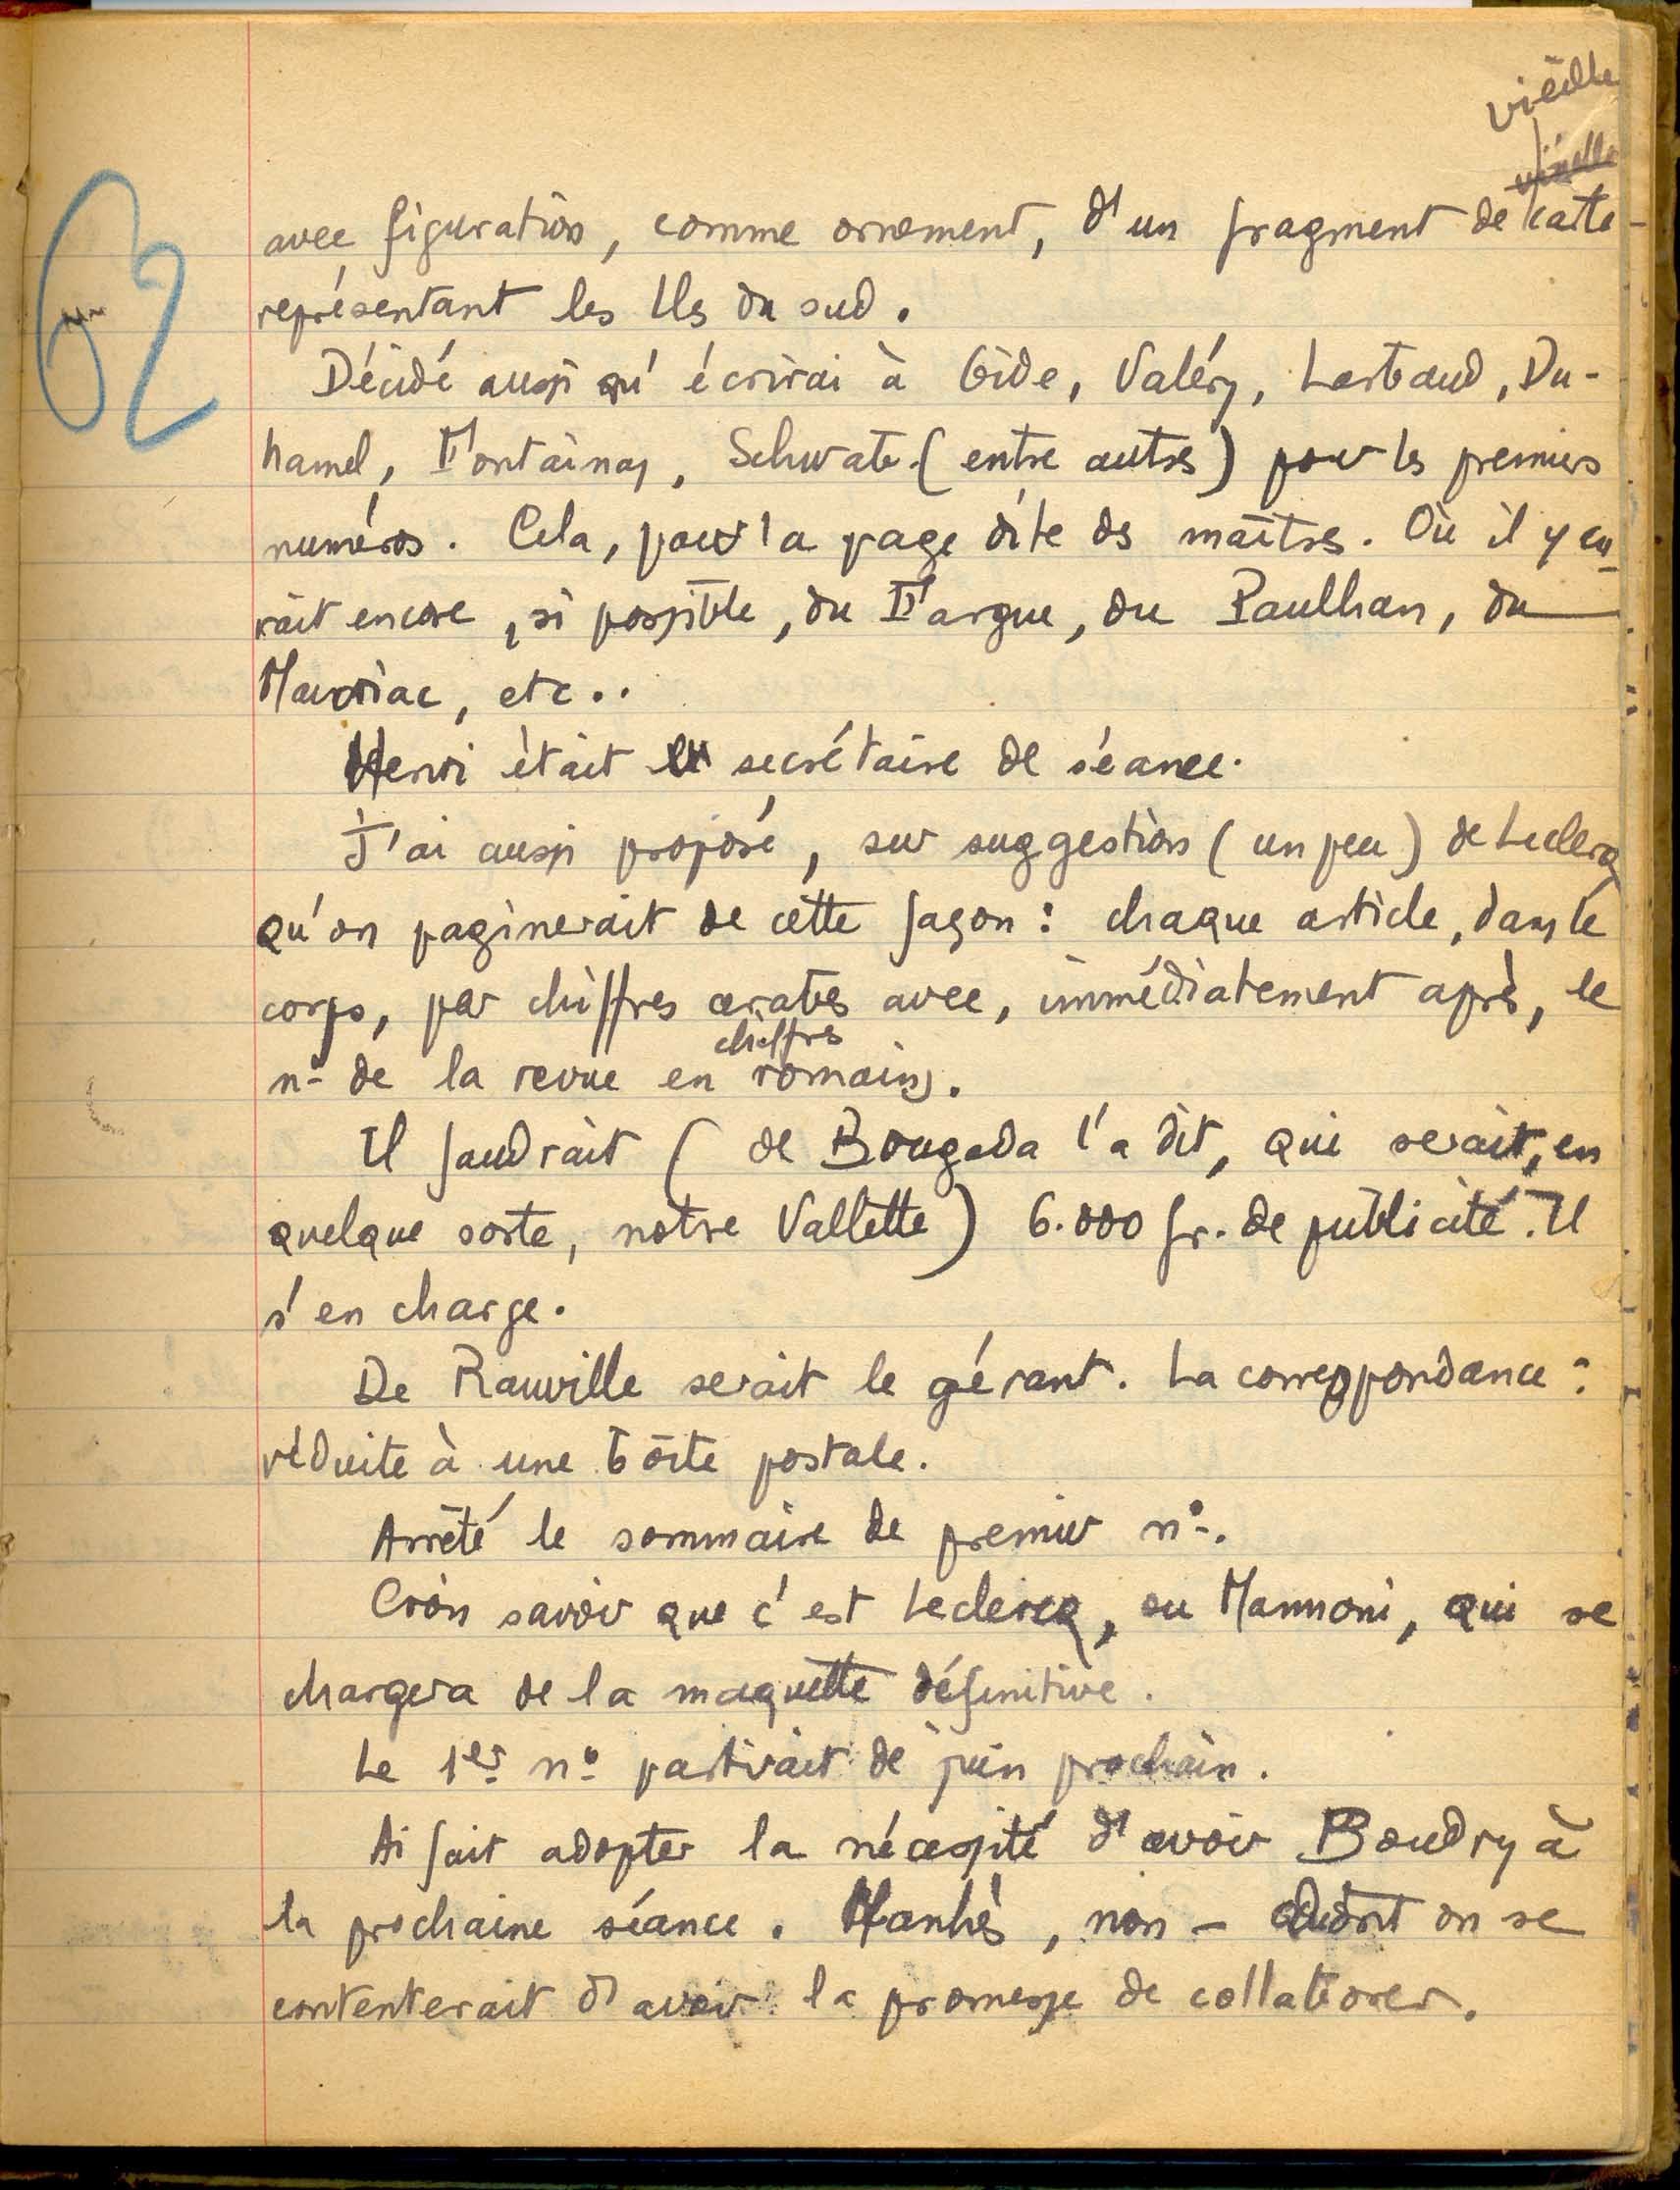 vieille
62
avec figuration, comme ornement, d'un fragment de carte
représentant les Iles du sud.
Décidé aussi qu'écrirai à Gide, Valéry, Larbaud, Du-
hamel, Fontainas, Schwab (entre autres) pour les premiers
numéros. Cela, pour la page dite des maîtres. Où il y au-
rait encore, si possible, du Fargue, du Paulhan, du
Mauriac, etc..
Henri était le secrétaire de séance.
J'ai aussi proposé, sur suggestion (un peu) de Leclercq
qu'on paginerait de cette façon : chaque article, dans le
corps, par chiffres arabes avec, immédiatement après, le
n° de la revue en chiffres romains.
Il faudrait (de Bougada l'a dit, qui serait, en
quelque sorte, notre Vallette) 6.000 fr. de publicité. Il
s'en charge.
De Rauville serait le gérant. La correspondance :
réduite à une boîte postale.
Arrêté le sommaire de premier n°.
Crois savoir que c'est Leclercq, ou Mannoni, qui se
chargera de la maquette définitive.
Le 1er n° partirait de juin prochain.
Ai fait adopter la nécessité d'avoir Boudry à
la prochaine séance. Manhès, non - dont on se
contenterait d'avoir la promesse de collaborer.